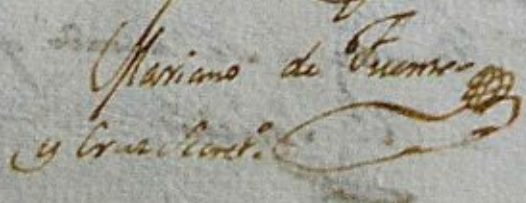 Mariano de Fuentes
y Cruz